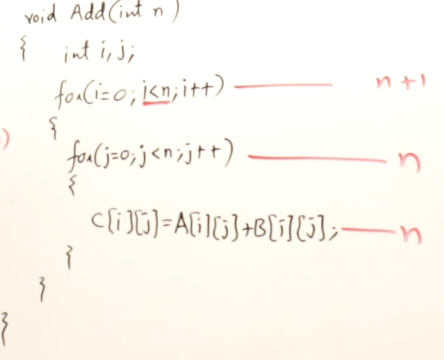 void Add(int n)
{ int i,j;
for(i=0; i<n; i++) n+1
{
) for(j=0; j<n; j++) n
{
C[i][j]=A[i][j]+B[i][j]; n
}
}
}